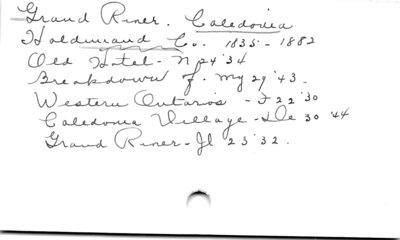 Grand River. Caledonia
Haldimand Co. 1835 - 1882
Old Hotel - N 24 '34
Breakdown of. My 29 '43.
Western Ontario's - F 22 '30
Caledonia Village - De 30 '44
Grand River - Jl 23 '32.